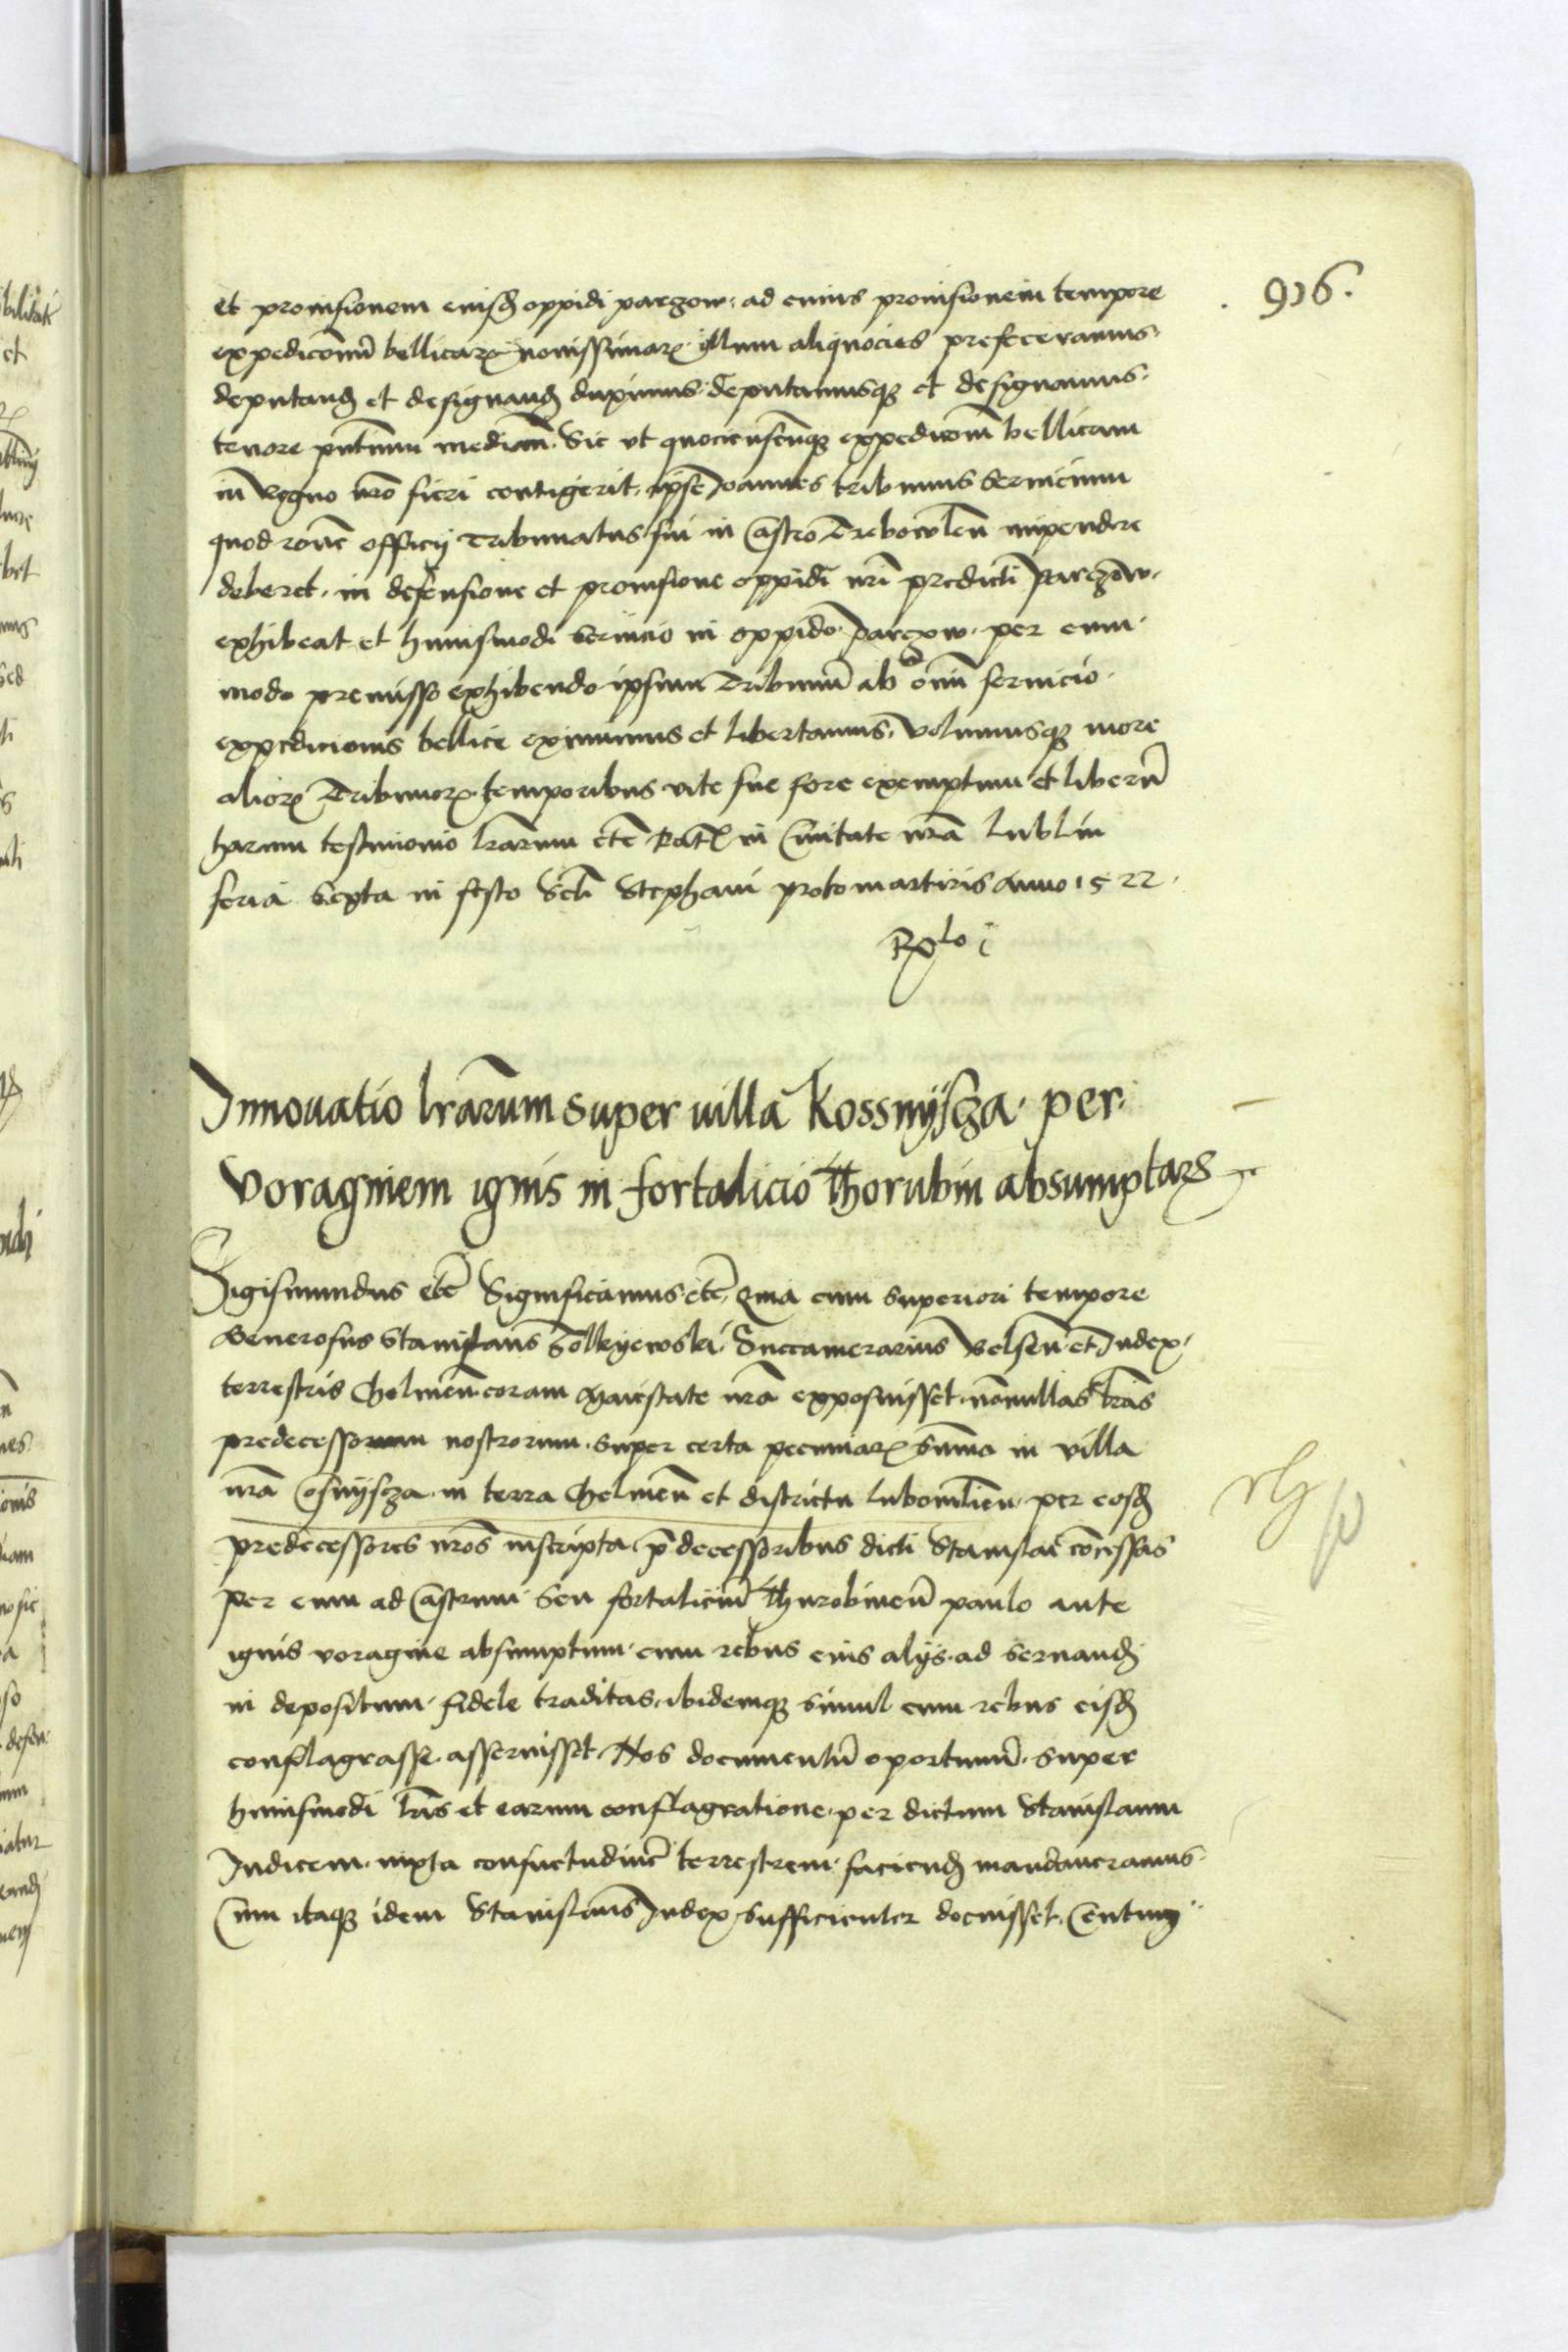 916.
et prouisionem eiusd oppidi parczow, ad cuius prouisionem tempore
expedicõnũ bellicarꝝ nouissimarꝝ illum aliquocies prefeceramus.
deputand et designand duximus. deputamusqꝫ et designamus.
tenore pñtium median̄. Sic vt quociescũqꝫ expedicõm bellicam
in Regno nrõ fieri contigerit, ipse Joannes tribunus seruicium
quod rõne officij Tribunatus sui in Castro Trebowlen̄ impendere
deberet, in defensione et prouisione oppidi nrĩ predicti Parczow.
exhibeat et huiusmodi seruicio in oppido Parczow per eum
modo premisso exhibendo ipsum Tribunũ ab omĩ seruicio
expedicionis bellice eximimus et libertamus, volumusqꝫ more
aliorꝝ Tribunorꝝ temporibus vite sue fore exemptum et liberũ
harum testimonio lrãrum etc̃ Dat in Ciuitate nrã Lublin
feria sexta in festo Scti Stephani prothomartiris Anno 1522.
Innouatio lrãrum super villa Kossnyscza per
voraginem ignis in fortalicio Thorubin absumptarꝝ
Sigismundus etc̃ Significamus etc̃, Quia cum superiori tempore
Generosus Stanislaus Zolkyewski Succamerarius Belsen̄ et Judex
terrestris Chelmen̄ coram Maiestate nrã exposuisset, nõnullas lrãs
predecessorum nostrorum super certa pecuniarꝝ sũma in villa
nrã Cosnyscza in terra Chelmen̄ et districtu Lubomlien̄ per eosd
predecessores nrõs inscripta, p̃decessoribus dicti Stanislai cõcessas
per eum ad Castrum seu fortaliciũ Thurobinen̄ paulo ante
ignis voragine absumptum, cum rebus eius alijs ad seruand
in depositum fidele traditas, ibidemqꝫ simul cum rebus eisd
conflagrasse asseruisset. Nos documentũ oportunũ super
huiusmodi lrĩs et earum conflagratione, per dictum Stanislaum
Judicem, iuxta consuetudinẽ terrestrem faciend mandaueramus.
Cum itaqꝫ idem Stanislaus Judex sufficienter docuisset,